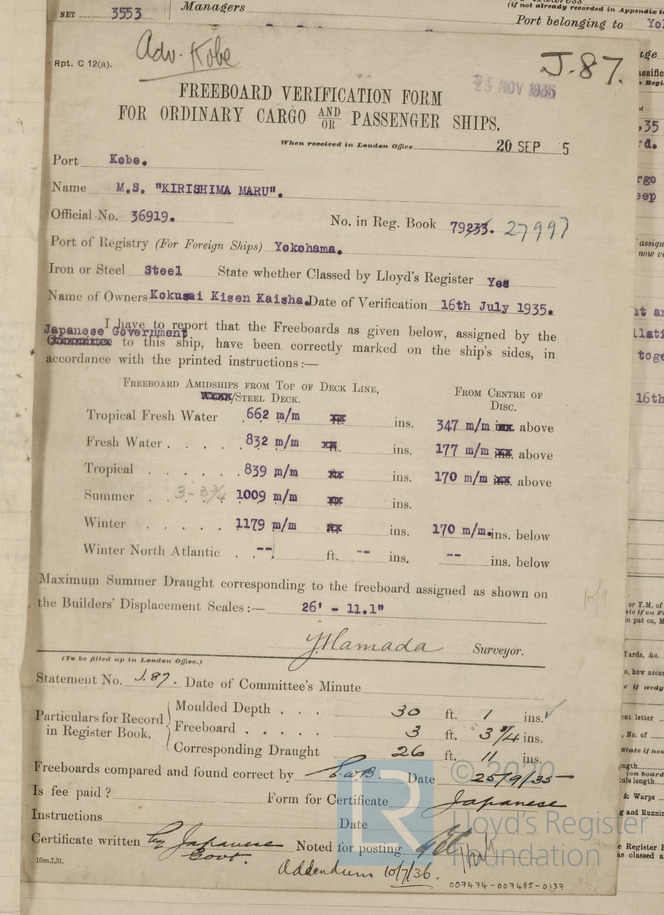 NET 3553 Managers
(if not already recorded in Appendix
Port belonging to Yo
Adv. Kobe
J.87.
Rpt. C 12(a).
25 NOV 1935
FREEBOARD VERIFICATION FORM
FOR ORDINARY CARGO AND/OR PASSENGER SHIPS.
When received in London Office 20 SEP 5
Port Kobe.
Name M.S. "KIRISHIMA MARU".
Official No. 36919. No. in Reg. Book 79233. 27997
Port of Registry (For Foreign Ships) Yokohama.
Iron or Steel Steel State whether Classed by Lloyd's Register Yes
Name of Owners Kokusai Kisen Kaisha. Date of Verification 16th July 1935.
I have to report that the Freeboards as given below, assigned by the
Japanese Government
to this ship, have been correctly marked on the ship's sides, in
accordance with the printed instructions:—
FREEBOARD AMIDSHIPS FROM TOP OF DECK LINE, FROM CENTRE OF
/STEEL DECK. DISC.
Tropical Fresh Water 662 m/m ins. 347 m/m above
Fresh Water . . . . 832 m/m ins. 177 m/m above
Tropical . . . . . 839 m/m ins. 170 m/m above
Summer . . 3-3¾ 1009 m/m ins.
Winter . . . . . 1179 m/m ins. 170 m/m. ins. below
Winter North Atlantic . . -- ft. -- ins. -- ins. below
Maximum Summer Draught corresponding to the freeboard assigned as shown on
the Builders' Displacement Scales:— 26' - 11.1"
YHamada Surveyor.
(To be filled up in London Office.)
Statement No. J.87. Date of Committee's Minute
Particulars for Record in Register Book.
Moulded Depth . . . 30 ft. 1 ins.
Freeboard . . . . . 3 ft. 3¾ ins.
Corresponding Draught 26 ft. 11 ins.
Freeboards compared and found correct by E.W.B Date 25/9/35
Is fee paid ? Form for Certificate Japanese
Instructions Date
Certificate written by Japanese Govt. Noted for posting
10m,7,31.
Addendum 10/7/36.
007474-007485-0137
© 2020
Lloyd's Register
Foundation